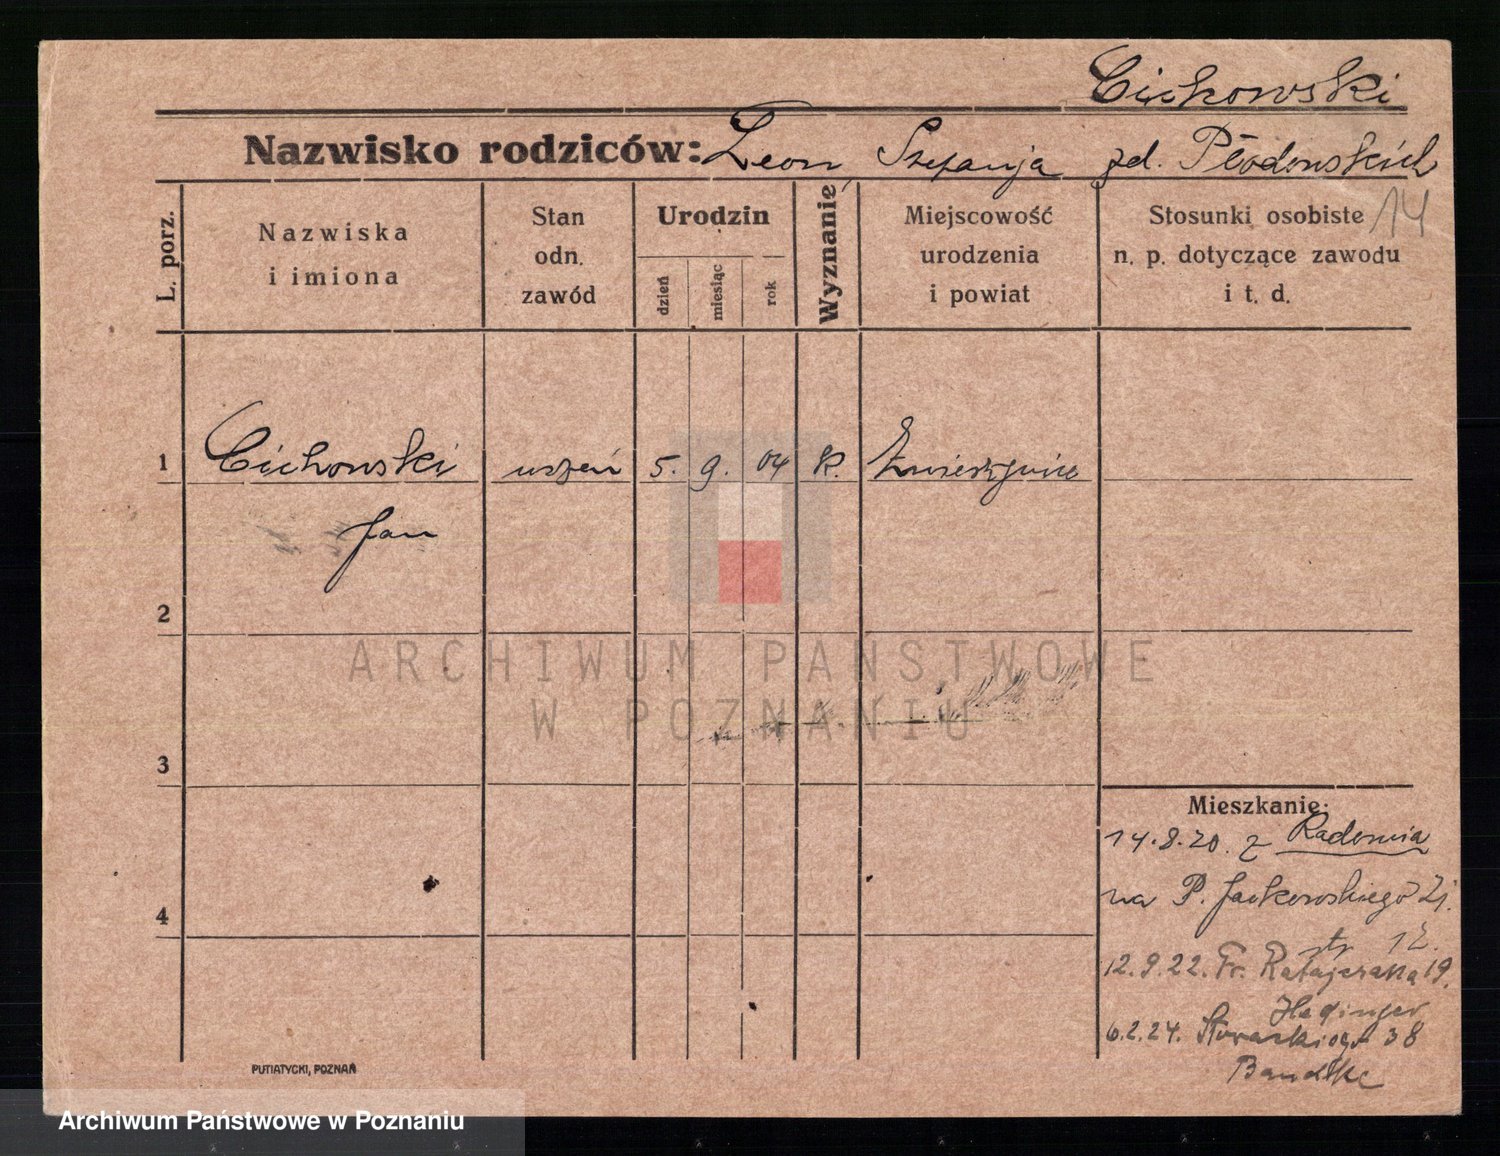 Cichowski
Nazwisko rodziców: Leon, Stefanja zd. Płodowskich
14
L. porz.
Nazwiska
i imiona
Stan
odn.
zawód
Urodzin
dzień
miesiąc
rok
Wyznanie
Miejscowość
urodzenia
i powiat
Stosunki osobiste
n. p. dotyczące zawodu
i t. d.
1 Cichowski uczeń 5. 9. 04 k.
Jan
2
3
4
Mieszkanie:
14.8.20. z Radomia
na P. Jackowskiego
12.9.22. Fr. Ratajczaka 19.
Hedinger
6.2.24. Słowackiego 38
Bandtke
PUTIATYCKI, POZNAŃ
ARCHIWUM PAŃSTWOWE
W POZNANIU
Archiwum Państwowe w Poznaniu